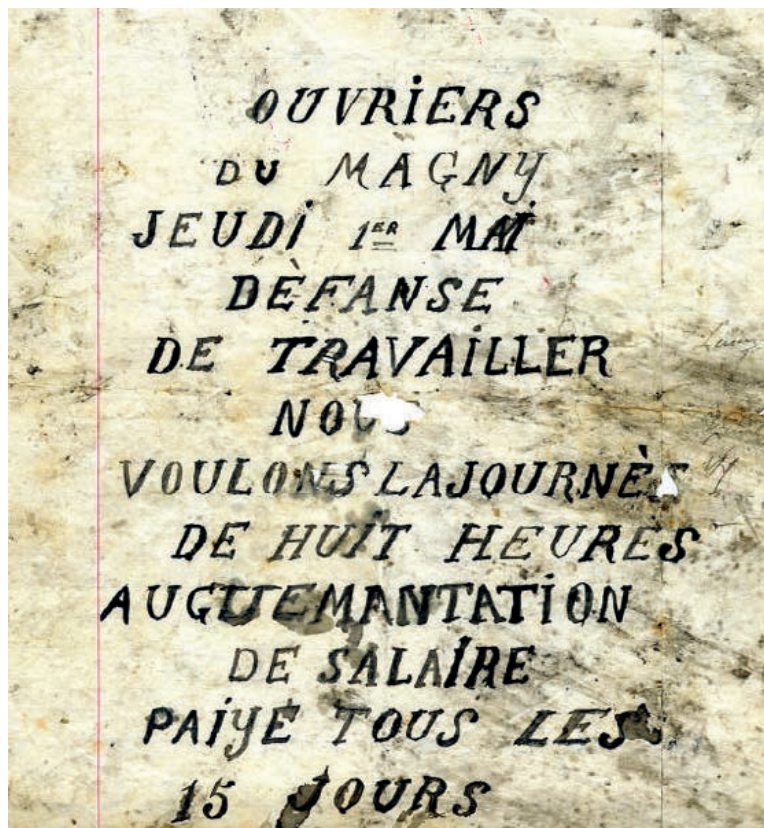 OUVRiERS
DU MAGNY
JEUDi 1ER MAi
DÈFANSE
DE TRAVAiLLER
NOUS
VOULONS LAJOURNÈS
DE HUIT HEURES
AUGUEMANTATiON
DE SALAiRE
PAiYÉ TOUS LES
15 JOURS